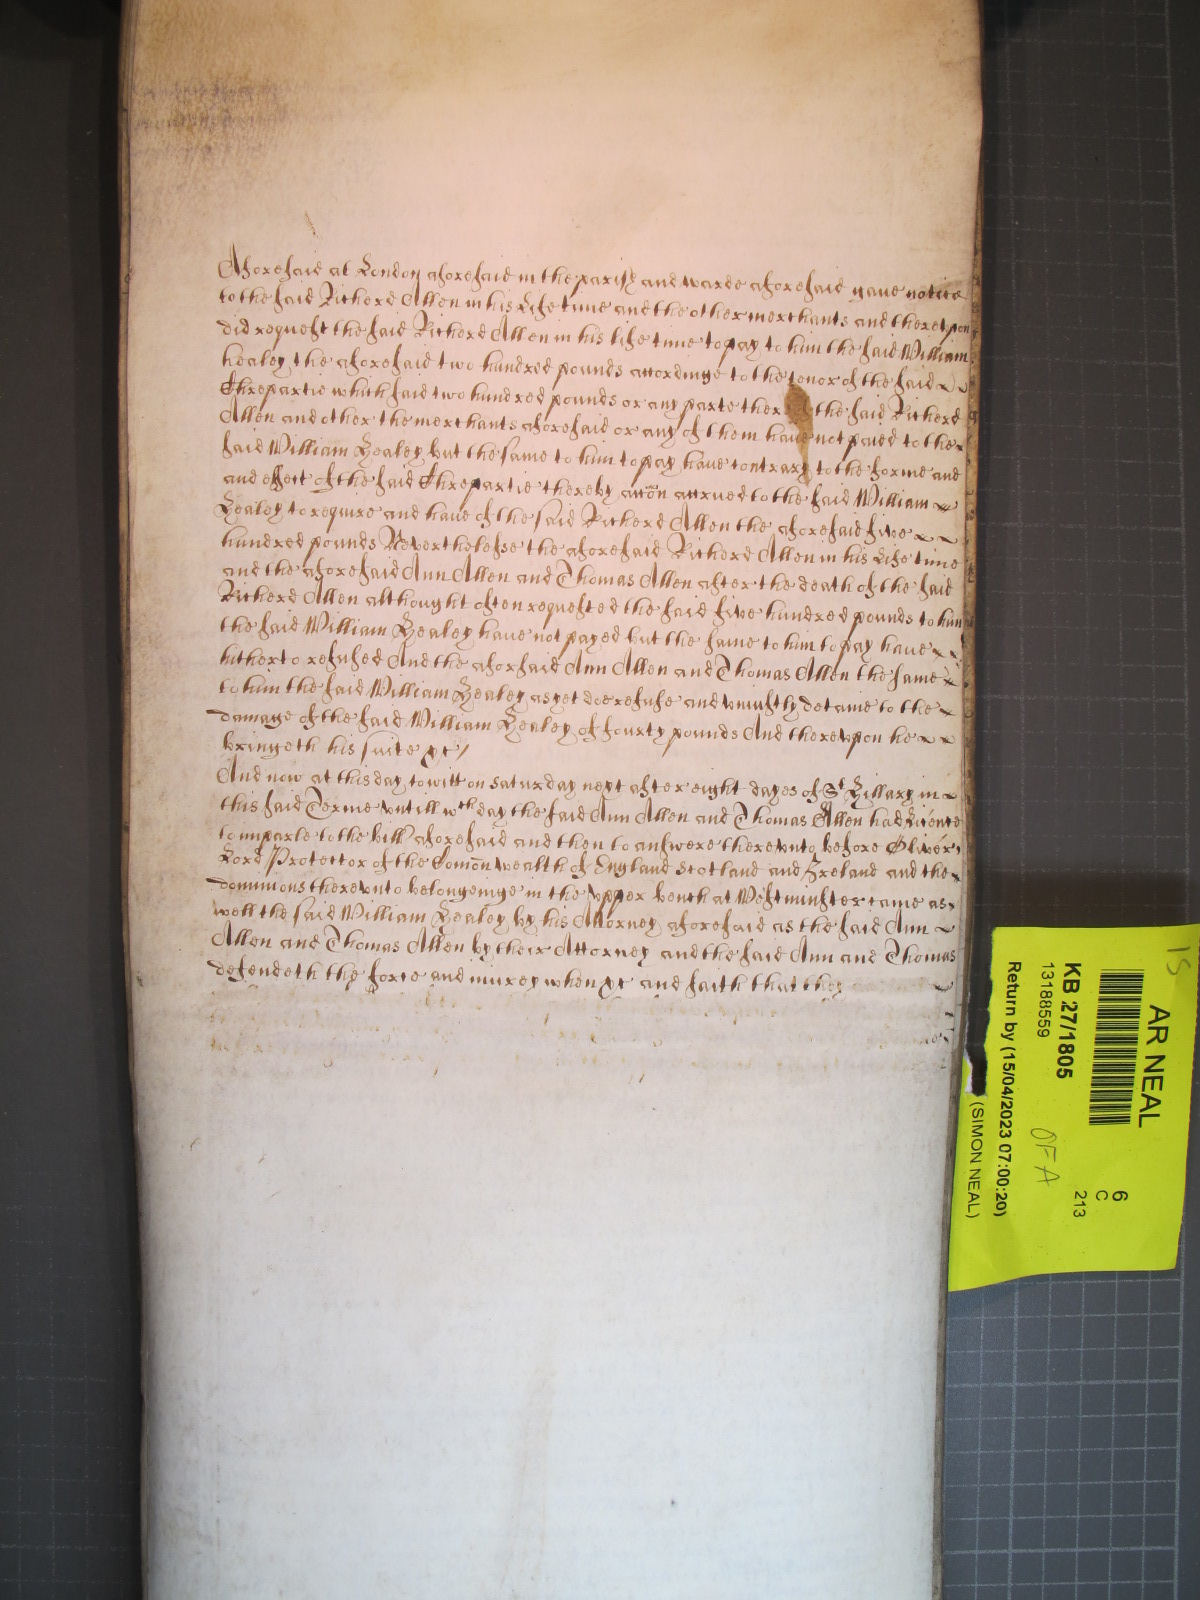 Aforesaid at London aforesaid in the parish and warde aforesaid gaue notice
to the said Richerd Allen in his Life time and the other merchants and therevpon
did request the said Richerd Allen in his life time to pay to him the said William
healey the aforesaid two hundred pounds accordinge to the tenor of the said
Chrepartie which said two hundred pounds or any parte ther the said Richerd
Allen and other the merchants aforesaid or any of them haue not payed to the
said William Healey but the same to him to pay haue contrary to the forme and
and effect of the said Chrepartie thereby accōn accrued to the said William
Healey to require and haue of the said Richerd Allen the aforesaid five
hundred pounds Neverthelesse the aforesaid Richerd Allen in his Life time
and the aforesaid Ann Allen and Thomas Allen after the death of the said
Richerd Allen althought often requested the said five hundred pounds to him
the said William Healey haue not payed but the same to him to pay haue
hitherto refused And the aforsaid Ann Allen and Thomas Allen the same
to him the said William Healey as yet doe refuse and vniustly detaine to the
damage of the said William Healey of fourty pounds And therevpon he
bringeth his suite &c/
And now at this day to witt on Saturday next after eight dayes of St Hillary in
this said Terme vntill wch day the said Ann Allen and Thomas Allen had Licence
to imparle to the bill aforesaid and then to answere therevnto before Oliver
Lord Protector of the Comōn wealth of England Scotland and Ireland and the
dominions therevnto belongeinge in the vpper bench at Westminster came as
well the said William Healey by his Attorney aforesaid as the said Ann
Allen and Thomas Allen by their Attorney and the said Ann and Thomas
defendeth the force and iniurey when &c and saith that they
15
AR NEAL
KB 27/1805
13188559
Return by (15/04/2023 07:00:20)
(SIMON NEAL)
OFA
6
C
213